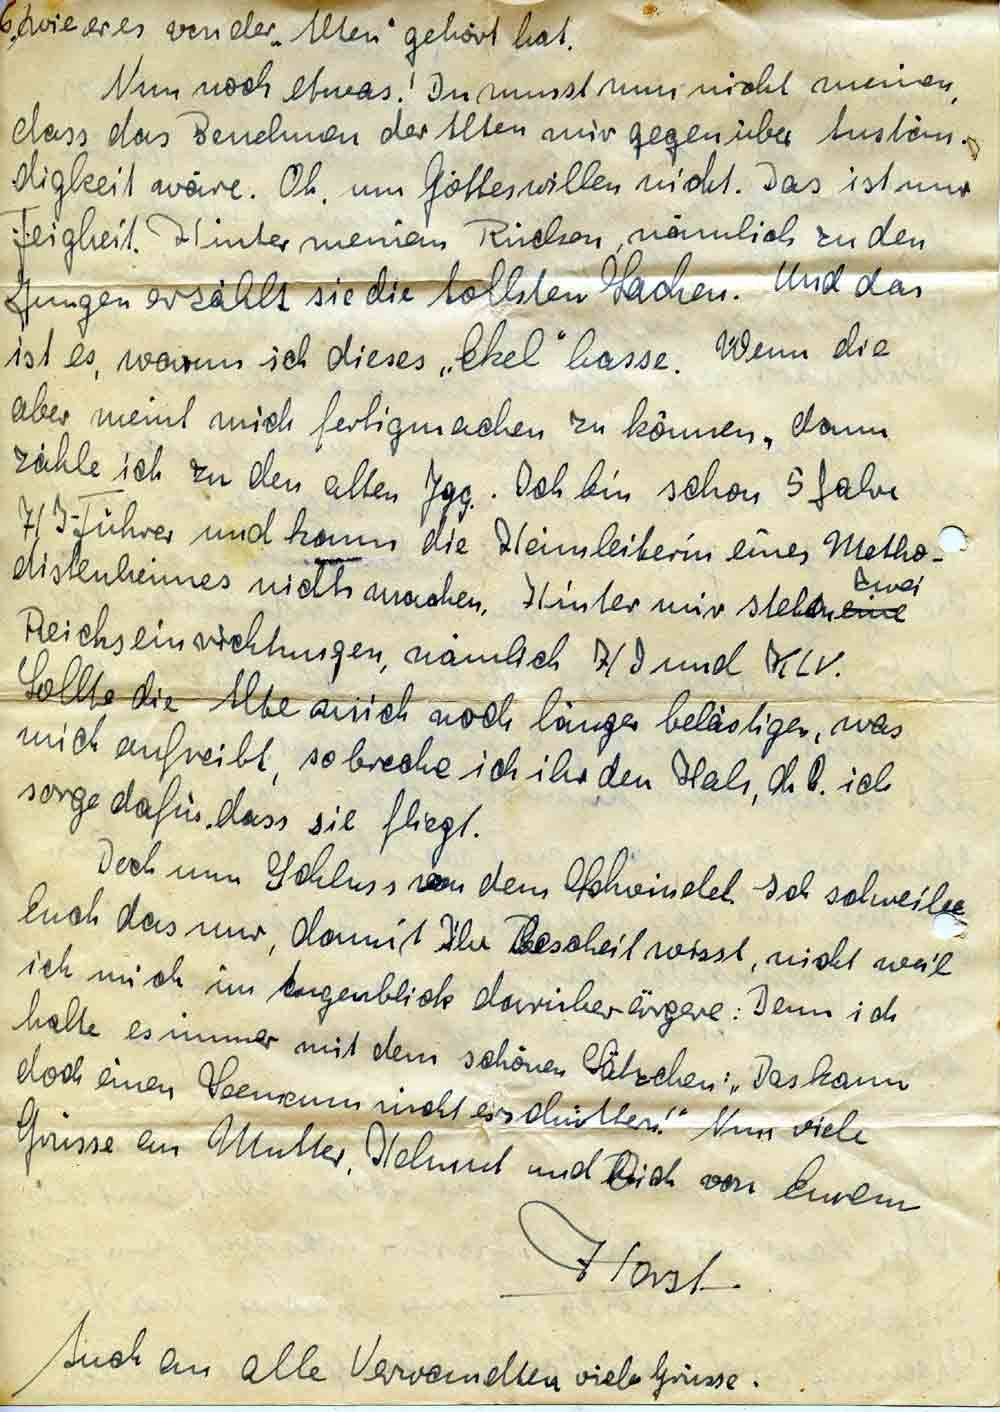 6, wie er es von der „Alten“ gehört hat.
Nun noch etwas! Du musst nun nicht meinen,
dass das Benehmen der Alten mir gegenüber Anstän-
digkeit wäre. Oh, um Gotteswillen nicht. Das ist nur
Feigheit. Hinter meinem Rücken, nämlich zu den
Jungen erzählt sie die tollsten Sachen. Und das
ist es, warum ich dieses „Ekel“ hasse. Wenn die
aber meint mich fertigmachen zu können, dann
zähle ich zu den alten Jgg. Ich bin schon 5 Jahre
HJ-Führer und kann die Heimleiterin eines Metho-
distenheimes nichts machen. Hinter mir stehen eine zwei
Reichseinrichtungen, nämlich HJ und KLV.
Sollte die Alte mich noch länger belästigen, was
mich aufreibt, so breche ich ihr den Hals, d.h. ich
sorge dafür, dass sie fliegt.
Doch nun Schluss von dem Schwindel. Ich schreibe
Euch das nur, damit Ihr Bescheit wisst, nicht weil
ich mich im Augenblick darüber ärgere: Denn ich
halte es immer mit dem schönen Sätzchen: „Das kann
doch einen Seemann nicht erschüttern!“ Nun viele
Grüsse an Mutter, Helmut und Dich von Eurem
Horst.
Auch an alle Verwandten viele Grüsse.